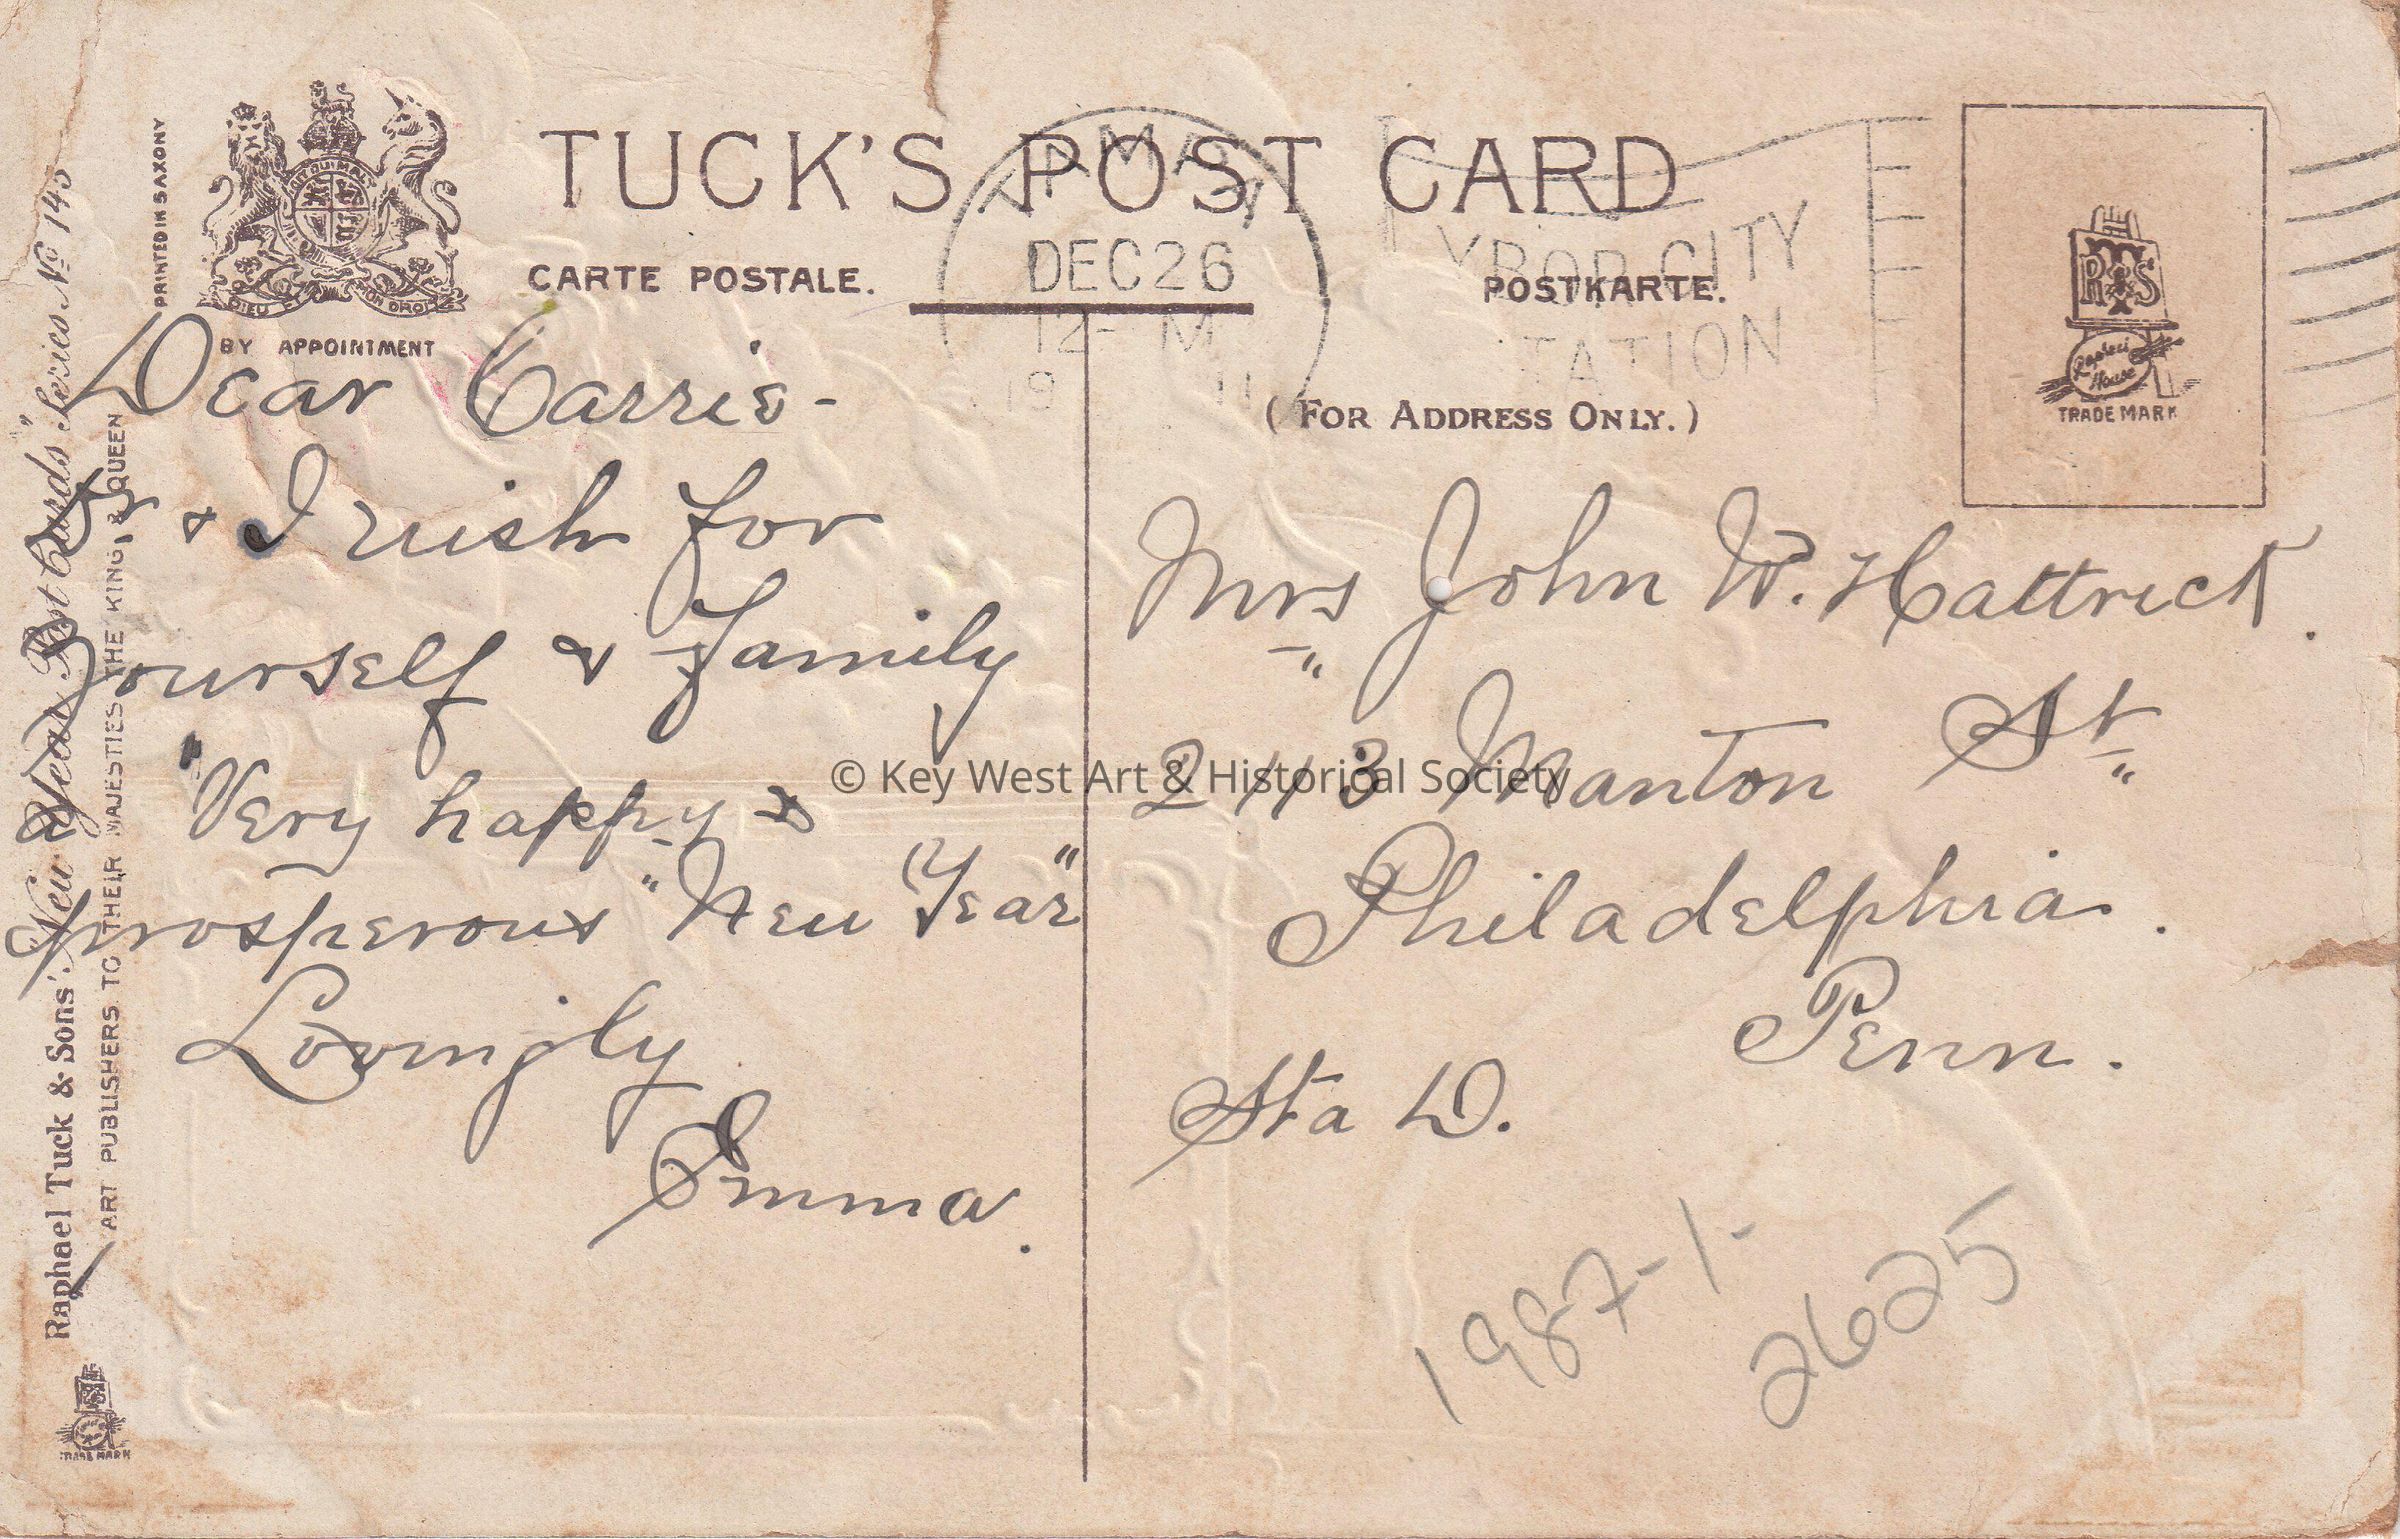 TUCK'S POST CARD
CARTE POSTALE.
POSTKARTE.
(FOR ADDRESS ONLY.)
BY APPOINTMENT
PRINTED IN SAXONY
Raphael Tuck & Sons' "New Year Post Cards" Series No 145
ART PUBLISHERS TO THEIR MAJESTIES THE KING & QUEEN
TRADE MARK
TAMPA
DEC 26
12- M
19 11
YBOR CITY
STATION
RTS
Raphael
House
TRADE MARK
DIEU DROIT
Dear Carrie-
& I wish for
Yourself & Family
a "Very happy &
prosperous "New Year"
Lovingly
Emma.
Mrs John W. Hattrick.
2113 Manton St
Philadelphia.
Penn.
Sta D.
1987-1-
2625
© Key West Art & Historical Society